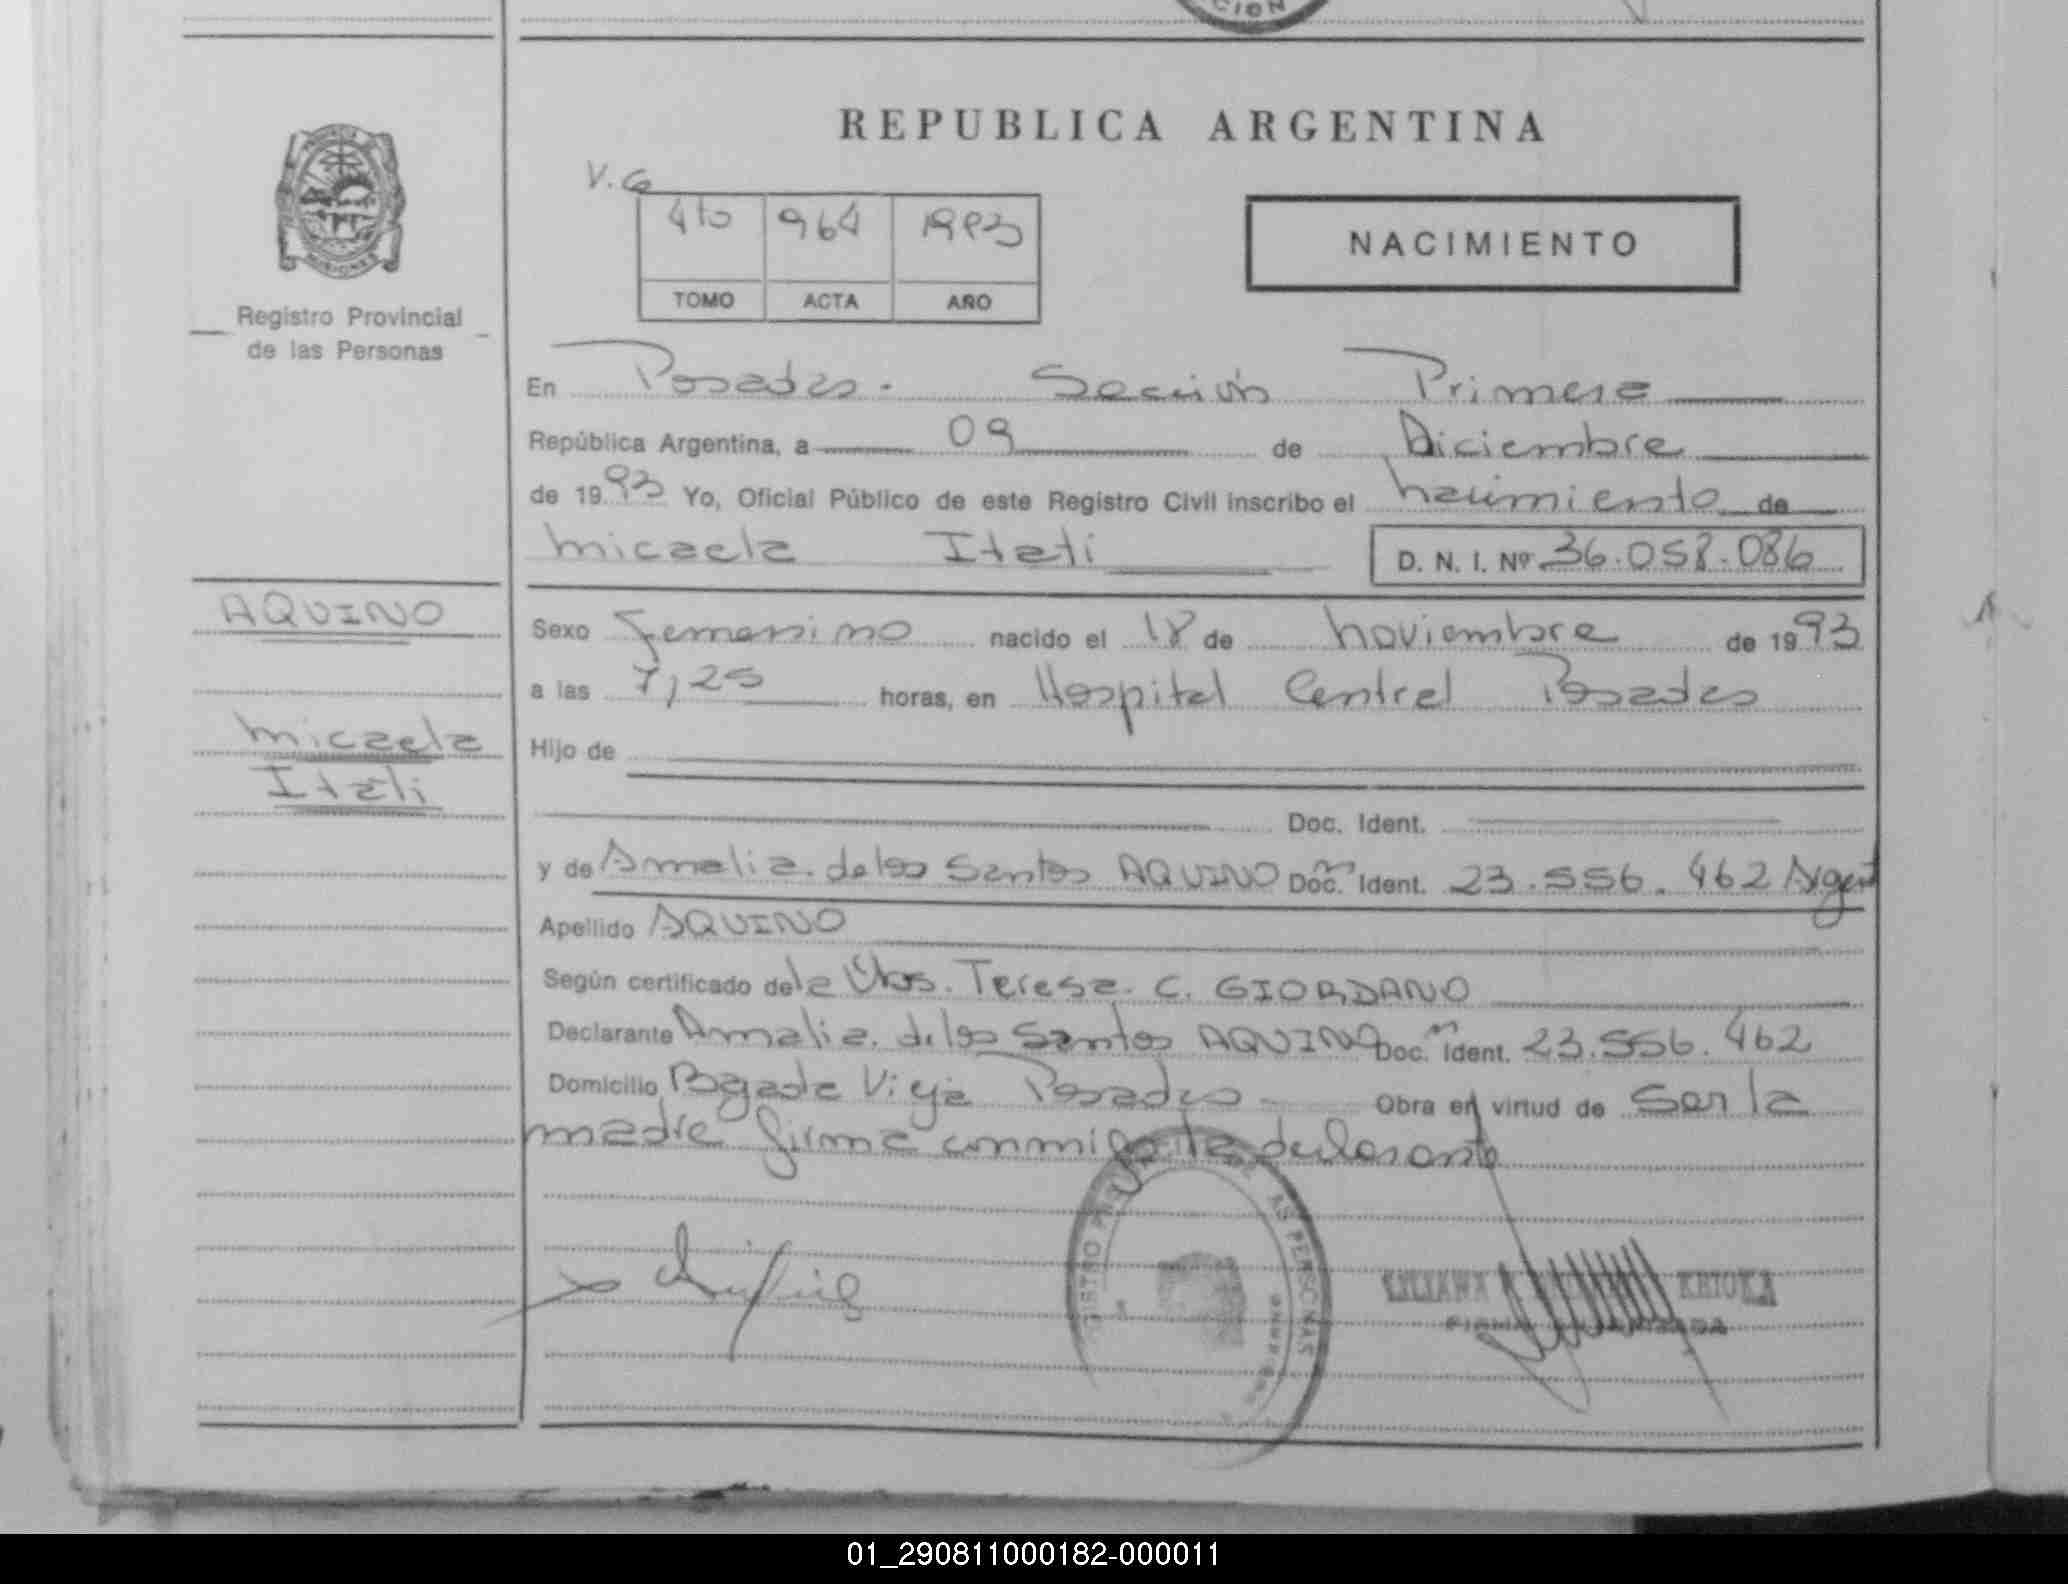 CION
REPUBLICA ARGENTINA
PROVINCIA
MISIONES
Registro Provincial
de las Personas
V.G
4to 964 1993
TOMO ACTA AÑO
NACIMIENTO
En Posadas. Sección Primera
República Argentina, a 09 de Diciembre
de 1993 Yo, Oficial Público de este Registro Civil inscribo el nacimiento de
Micaela Itati D. N. I. Nº 36.058.086
AQUINO
Micaela
Itati
Sexo femenino nacido el 18 de noviembre de 1993
a las 7,25 horas, en Hospital Central Posadas
Hijo de
Doc. Ident.
y de Amalia de los Santos AQUINO Doc. Ident. 23.556.462 Argent
Apellido AQUINO
Según certificado de la Obs. Teresa C. GIORDANO
Declarante Amalia de los Santos AQUINO Doc. Ident. 23.556.462
Domicilio Bajada Vieja Posadas Obra en virtud de ser la
madre firma conmigo la declarante
AS PERSONAS
LILIANA KRIOKA
01_290811000182-000011